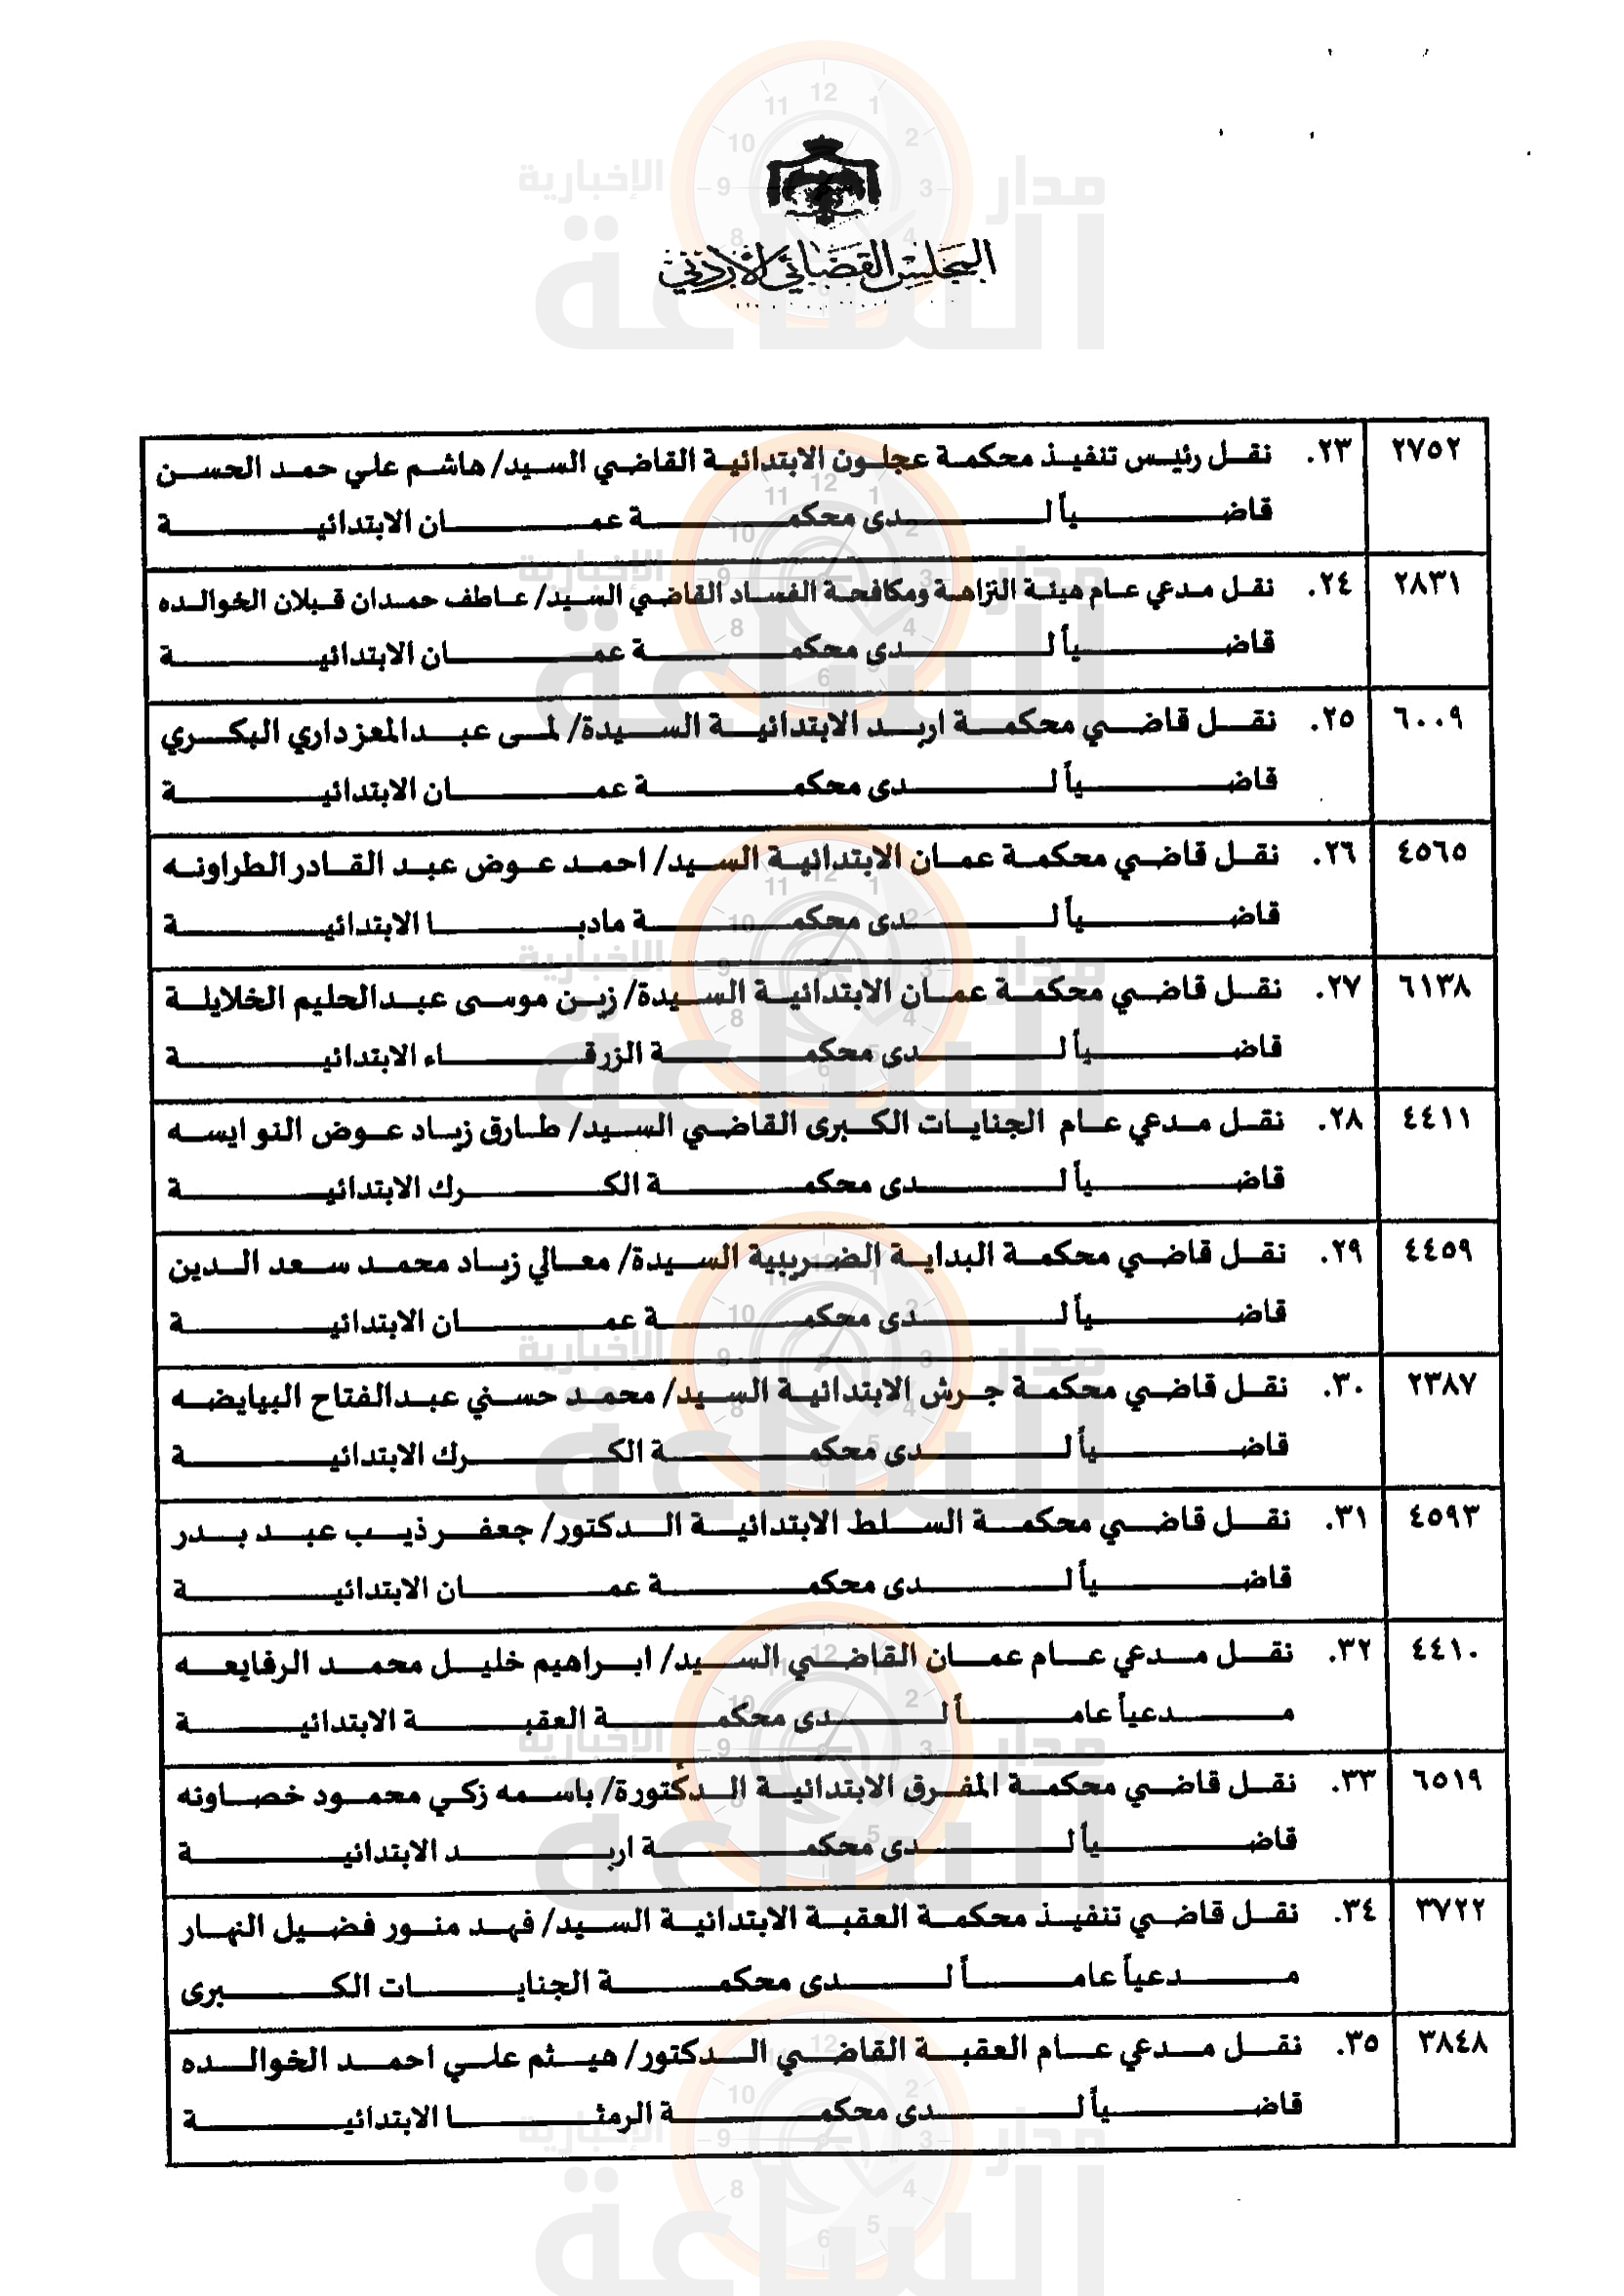 المجلس القضائي الأردني
٢٧٥٢ ٢٣. نقل رئيس تنفيذ محكمة عجلون الابتدائية القاضي السيد/ هاشم علي حمد الحسن
قاضياً لدى محكمة عمان الابتدائية
٢٨٣١ ٢٤. نقل مدعي عام هيئة النزاهة ومكافحة الفساد القاضي السيد/ عاطف حمدان قبلان الخوالده
قاضياً لدى محكمة عمان الابتدائية
٦٠٠٩ ٢٥. نقل قاضي محكمة اربد الابتدائية السيدة/ لمى عبدالمعز داري البكري
قاضياً لدى محكمة عمان الابتدائية
٤٥٦٥ ٢٦. نقل قاضي محكمة عمان الابتدائية السيد/ احمد عوض عبد القادر الطراونه
قاضياً لدى محكمة مادبا الابتدائية
٦١٣٨ ٢٧. نقل قاضي محكمة عمان الابتدائية السيدة/ زين موسى عبدالحليم الخلايلة
قاضياً لدى محكمة الزرقاء الابتدائية
٤٤١١ ٢٨. نقل مدعي عام الجنايات الكبرى القاضي السيد/ طارق زياد عوض النوايسه
قاضياً لدى محكمة الكرك الابتدائية
٤٤٥٩ ٢٩. نقل قاضي محكمة البداية الضريبية السيدة/ معالي زياد محمد سعد الدين
قاضياً لدى محكمة عمان الابتدائية
٢٣٨٧ ٣٠. نقل قاضي محكمة جرش الابتدائية السيد/ محمد حسني عبدالفتاح البيايضه
قاضياً لدى محكمة الكرك الابتدائية
٤٥٩٣ ٣١. نقل قاضي محكمة السلط الابتدائية الدكتور/ جعفر ذيب عبد بدر
قاضياً لدى محكمة عمان الابتدائية
٤٤١٠ ٣٢. نقل مدعي عام عمان القاضي السيد/ ابراهيم خليل محمد الرفايعه
مدعياً عاماً لدى محكمة العقبة الابتدائية
٦٥١٩ ٣٣. نقل قاضي محكمة المفرق الابتدائية الدكتورة/ باسمه زكي محمود خصاونه
قاضياً لدى محكمة اربد الابتدائية
٣٧٢٢ ٣٤. نقل قاضي تنفيذ محكمة العقبة الابتدائية السيد/ فهد منور فضيل النهار
مدعياً عاماً لدى محكمة الجنايات الكبرى
٣٨٤٨ ٣٥. نقل مدعي عام العقبة القاضي الدكتور/ هيثم علي احمد الخوالده
قاضياً لدى محكمة الرمثا الابتدائية
مدار الساعة الإخبارية